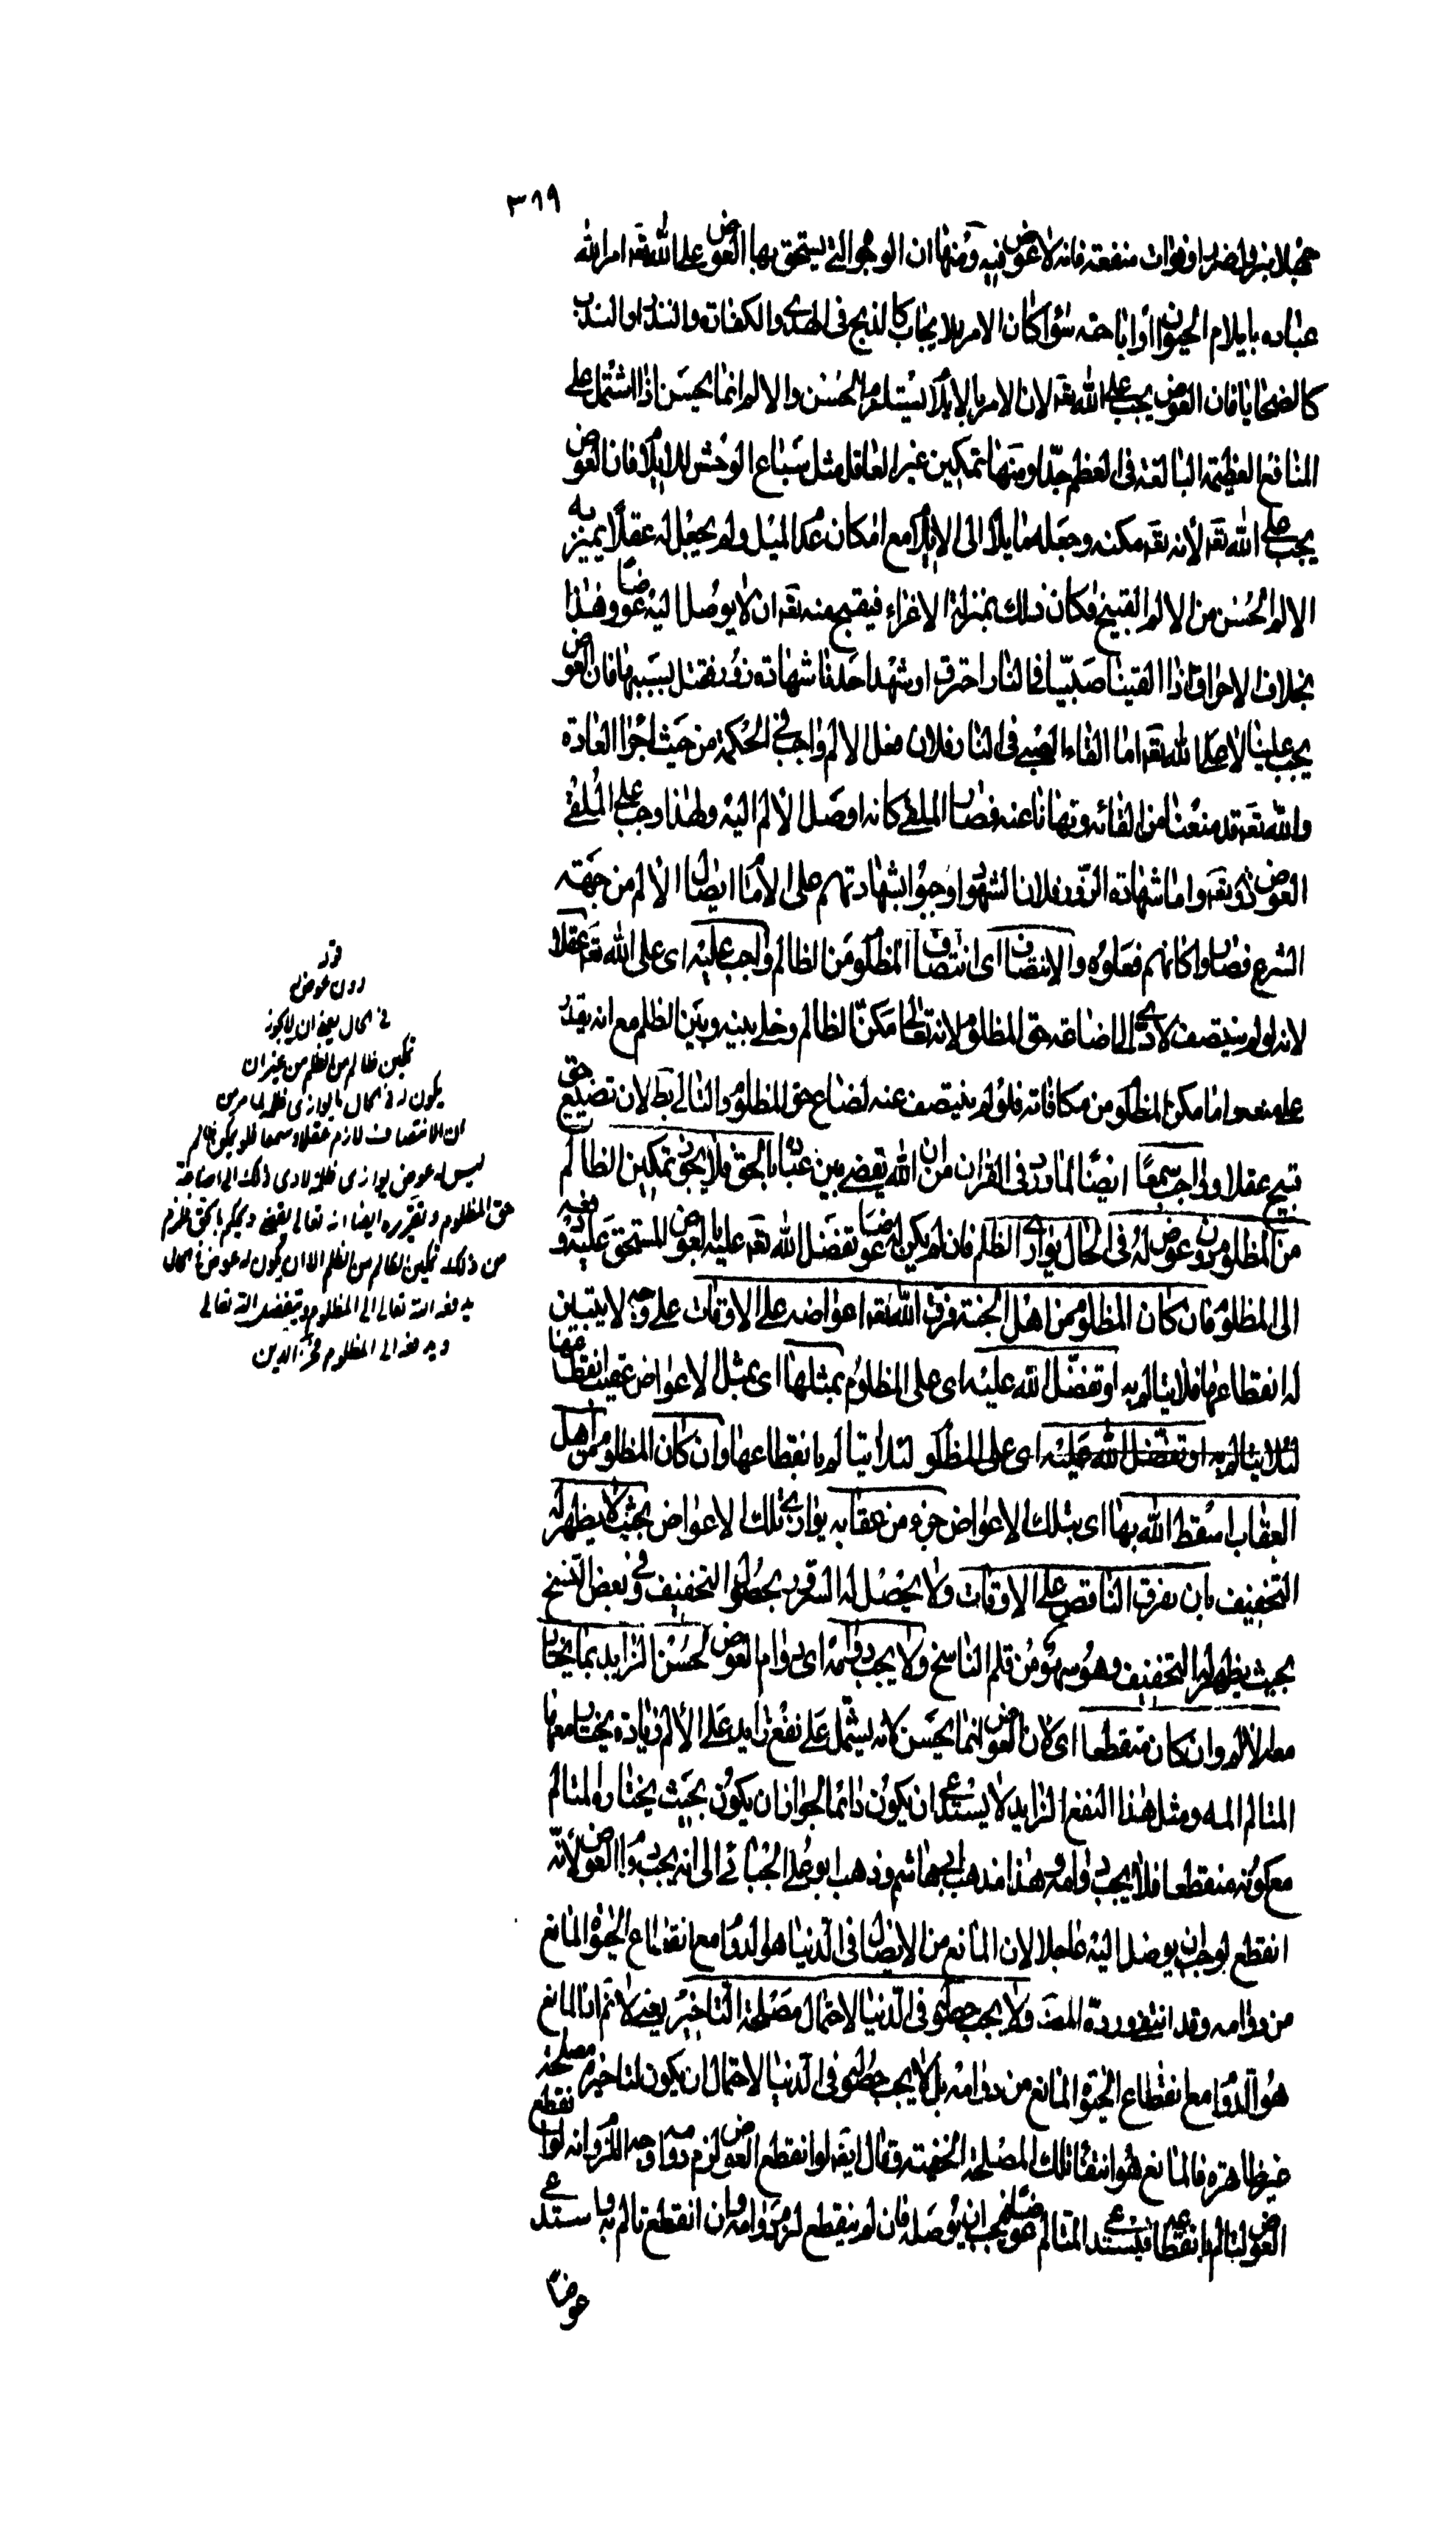 ٣٨٩
جهلا بنزول ضرر او فوات منفعة فانه لا عوض فيه ومنها ان الوجوه التي يستحق بها العوض على الله تعه امر الله
عباده بايلام الحيوان او اباحته سواء كان الامر للايجاب كالذبح في الهدي والكفارة والنذر او الندب
كالضحايا فان العوض يجب على الله تعه لان الامر بالايلام يستلزم الحسن والالم انما يحسن اذا اشتمل على
المنافع العظيمة البالغة في العظم جدا ومنها تمكين غير العاقل مثل سباع الوحش للايلام فان العوض
يجب على الله تعه لانه تعه مكنه وجعله مايلا الى الايلام مع امكان عدم الميل ولم يجعل له عقلا يميز به
الالم الحسن من الالم القبيح فكان ذلك بمنزلة الاغراء فيقبح منه تعه ان لا يوصل اليه عوضا وهذا
بخلاف الاحراق اذا القينا صبيا في النار احترق او شهد احدنا شهادة زور فقتل بسببها فان العوض
يجب علينا لا على الله تعه اما القاء الصبي في النار فلان فعل الالم واجب في الحكمة من حيث اجراء العادة
والله تعه قد منعنا من القائه ونهانا عنه فصار الملقي كانه اوصل الالم اليه ولهذا وجب على الملقي
العوض دونه تعه واما شهادة الزور فلان الشهود اوجبوا بشهادتهم على الامام ايصال الالم من جهة
الشرع فصاروا كانهم فعلوه والانتصاف اى انتصاف المظلوم من الظالم واجب عليه اى على الله تعه عقلا
لانه لو لم ينتصف لادى الى اضاعة حق المظلوم لانه تعالى مكن الظالم وخلى بينه وبين الظلم مع انه يقدر
على منعه وما مكن المظلوم من مكافاته فلو لم ينتصف عنه لضاع حق المظلوم والتالي بط لان تضييع حق
قبيح عقلا وواجب سمعا ايضا لما ورد في القران من ان الله يقضي بين عباده بالحق فلا يجوز تمكين الظالم
من المظلوم من دون عوض له في الحال يوازي الظلم فان لم يكن له عوضا تفضل الله تعه عليه بالعوض المستحق عليه ودفعه
الى المظلوم فان كان المظلوم من اهل الجنة فرق الله تعه اعواضه على الاوقات على وجه لا يتبين
له انقطاعها فلا يتالم به او تفضل الله عليه اى على المظلوم بمثلها اى بمثل الاعواض عقيب انقطاعها
لئلا يتالم به او تفضل الله عليه اى على المظلوم لئلا يتالم بانقطاعها وان كان المظلوم من اهل
العقاب اسقط الله بها اى بتلك الاعواض جزء من عقابه يوازي تلك الاعواض بحيث لا يظهر له
التخفيف بان يفرق الناقص على الاوقات ولا يحصل له السرور بحصول التخفيف وفي بعض النسخ
بحيث يظهر له التخفيف وهو سهو من قلم الناسخ ولا يجب دوامه اى دوام العوض لحسن الزايد بما يختار
معه الالم وان كان منقطعا اى لان العوض انما يحسن لانه يشتمل على نفع زايد على الالم زيادة يختار معها
المتالم المه ومثل هذا النفع الزايد لا يستدعي ان يكون دائما لجواز ان يكون بحيث يختاره المتالم
مع كونه منقطعا فلا يجب دوامه وهذا مذهب ابي هاشم وذهب ابو علي الجبائي الى انه يجب دوام العوض لانه
انقطع لوجب ان يوصل اليه عاجلا لان المانع من الايصال في الدنيا هو الدوام مع انقطاع الحيوة المانع
من دوامه وقد انتفى ورده المصنف ولا يجب حصوله في الدنيا لاحتمال مصلحة التاخير يعني لا نم ان المانع
هو الدوام مع انقطاع الحيوة المانع من دوامه بل لا يجب حصوله في الدنيا لاحتمال ان يكون لتاخيره مصلحة
غير ظاهرة فالمانع هو انتفاء تلك المصلحة الخفية وقال ايضا لو انقطع العوض لزم دوامه وجه اللزوم انه لو انقطع
العوض لتالم بانقطاعه فيستدعي المتالم عوضا فيجب ان يوصله فان لم ينقطع لزم دوامه وان انقطع تالم به ويستدعي
عوضا
قوله
دون عوض له
في الحال يعني ان لا يجوز
تمكين ظالم من الظلم من غير ان
يكون له في الحال ما يوازي ظلمه لما مر من
ان الانتصاف لازم عقلا وسمعا فلو تمكن ظالم
ليس له عوض يوازي ظلمه لادى ذلك الى اضاعة
حق المظلوم وتقريره ايضا انه تعالى يقضي ويحكم بالحق فلزم
من ذلك تمكين الظالم من الظلم الا ان يكون له عوض في الحال
يدفعه الله تعالى الى المظلوم او يتفضل الله تعالى
ويدفعه الى المظلوم فخر الدين